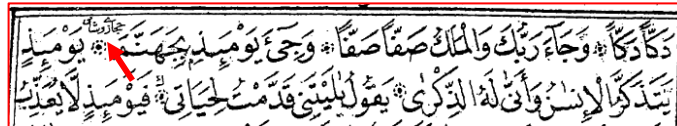 دَكًّا دَكًّا ۞ وَجَآءَ رَبُّكَ وَالْمَلَكُ صَفًّا صَفًّا ۞ وَجِيْٓءَ يَوْمَىِٕذٍۭ بِجَهَنَّمَ ۞ يَوْمَىِٕذٍ
يَّتَذَكَّرُ الْاِنْسٰنُ وَاَنّٰى لَهُ الذِّكْرٰى ۞ يَقُوْلُ يٰلَيْتَنِيْ قَدَّمْتُ لِحَيَاتِيْ ۞ فَيَوْمَىِٕذٍ لَّا يُعَذِّبُ